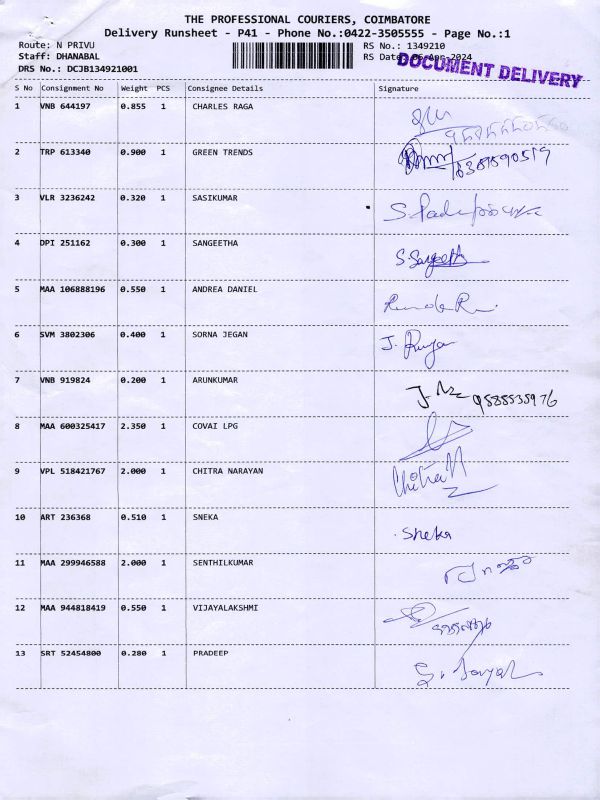 THE PROFESSIONAL COURIERS, COIMBATORE
Delivery Runsheet - P41 - Phone No.:0422-3505555 - Page No.:1
Route: N PRIVU
RS No.: 1349210
Staff: DHANABAL
RS Date: 06-Apr-2024
DOCUMENT DELIVERY
DRS No.: DCJB134921001
S No Consignment No Weight PCS Consignee Details Signature
1 VNB 644197 0.855 1 CHARLES RAGA
2 TRP 613340 0.900 1 GREEN TRENDS
3 VLR 3236242 0.320 1 SASIKUMAR
4 DPI 251162 0.300 1 SANGEETHA S. Sangeetha
5 MAA 106888196 0.550 1 ANDREA DANIEL
6 SVM 3802306 0.400 1 SORNA JEGAN
7 VNB 919824 0.200 1 ARUNKUMAR 9585535976
8 MAA 600325417 2.350 1 COVAI LPG
9 VPL 518421767 2.000 1 CHITRA NARAYAN Chitra N
10 ART 236368 0.510 1 SNEKA Sneka
11 MAA 299946588 2.000 1 SENTHILKUMAR
12 MAA 944818419 0.550 1 VIJAYALAKSHMI
13 SRT 52454800 0.280 1 PRADEEP